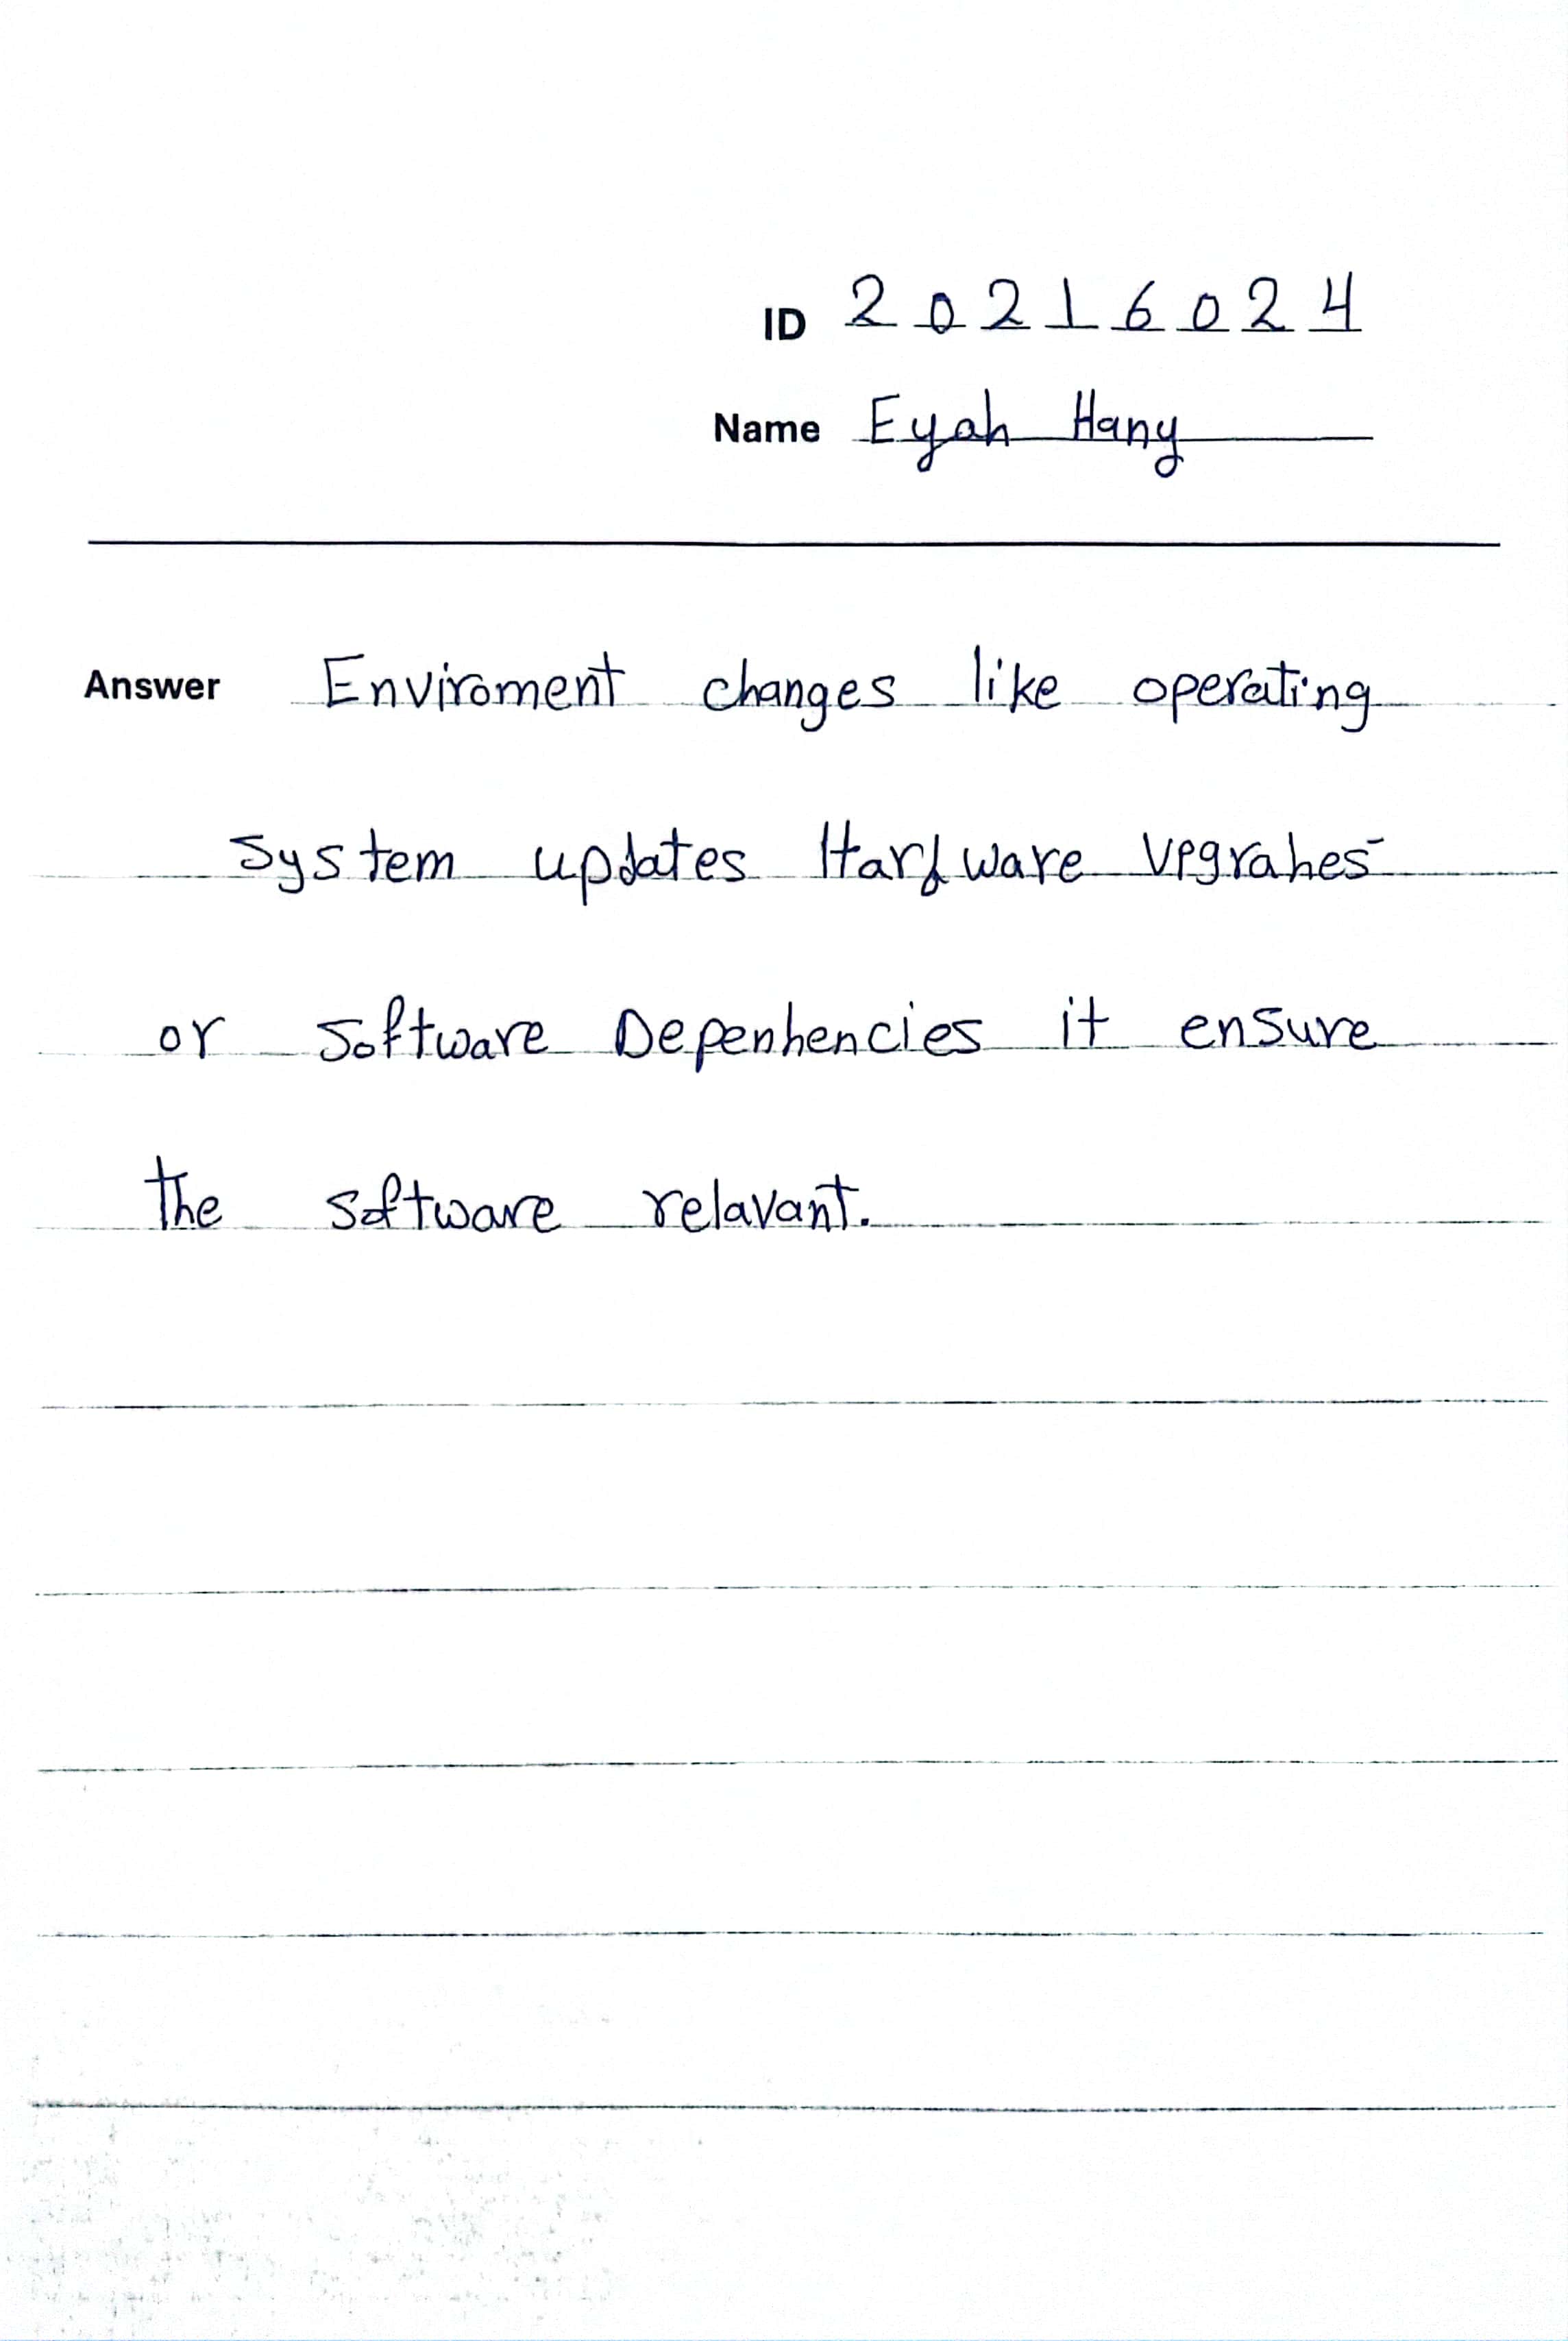 ID 20216024
Name Eyah Hany
Answer Enviroment changes like operating
system updates Hardware Vpgrahes
or software Depenhencies it ensure
the software relavant.